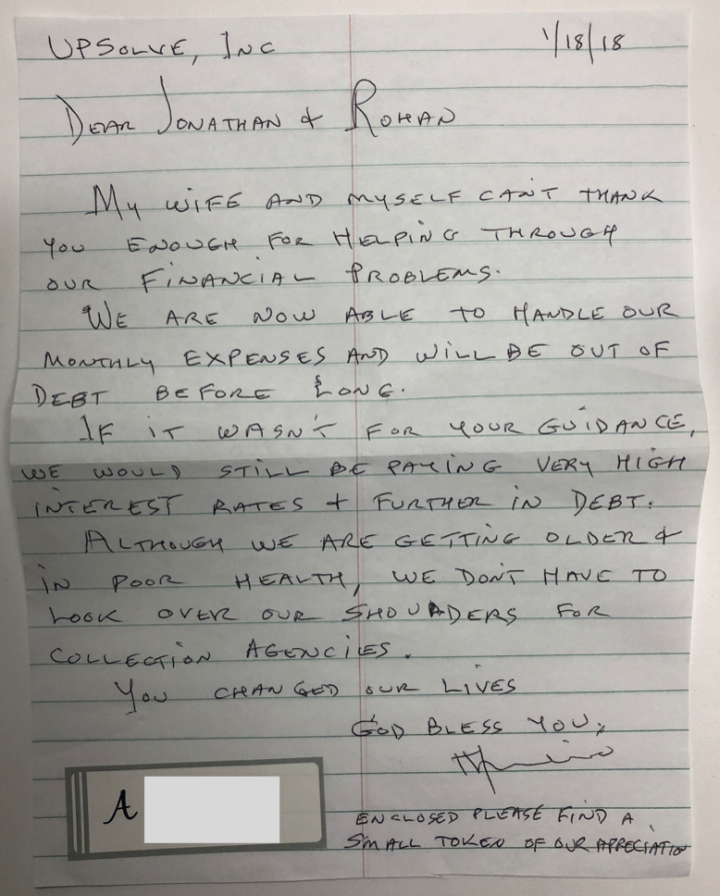 UPSOLVE, INC
1/18/18
DEAR JONATHAN & ROHAN
MY WIFE AND MYSELF CAN'T THANK
YOU ENOUGH FOR HELPING THROUGH
OUR FINANCIAL PROBLEMS.
WE ARE NOW ABLE TO HANDLE OUR
MONTHLY EXPENSES AND WILL BE OUT OF
DEBT BEFORE LONG.
IF IT WASN'T FOR YOUR GUIDANCE,
WE WOULD STILL BE PAYING VERY HIGH
INTEREST RATES + FURTHER IN DEBT.
ALTHOUGH WE ARE GETTING OLDER &
IN POOR HEALTH, WE DON'T HAVE TO
LOOK OVER OUR SHOULDERS FOR
COLLECTION AGENCIES.
YOU CHANGED OUR LIVES
GOD BLESS YOU,
A
ENCLOSED PLEASE FIND A
SMALL TOKEN OF OUR APPRECIATION